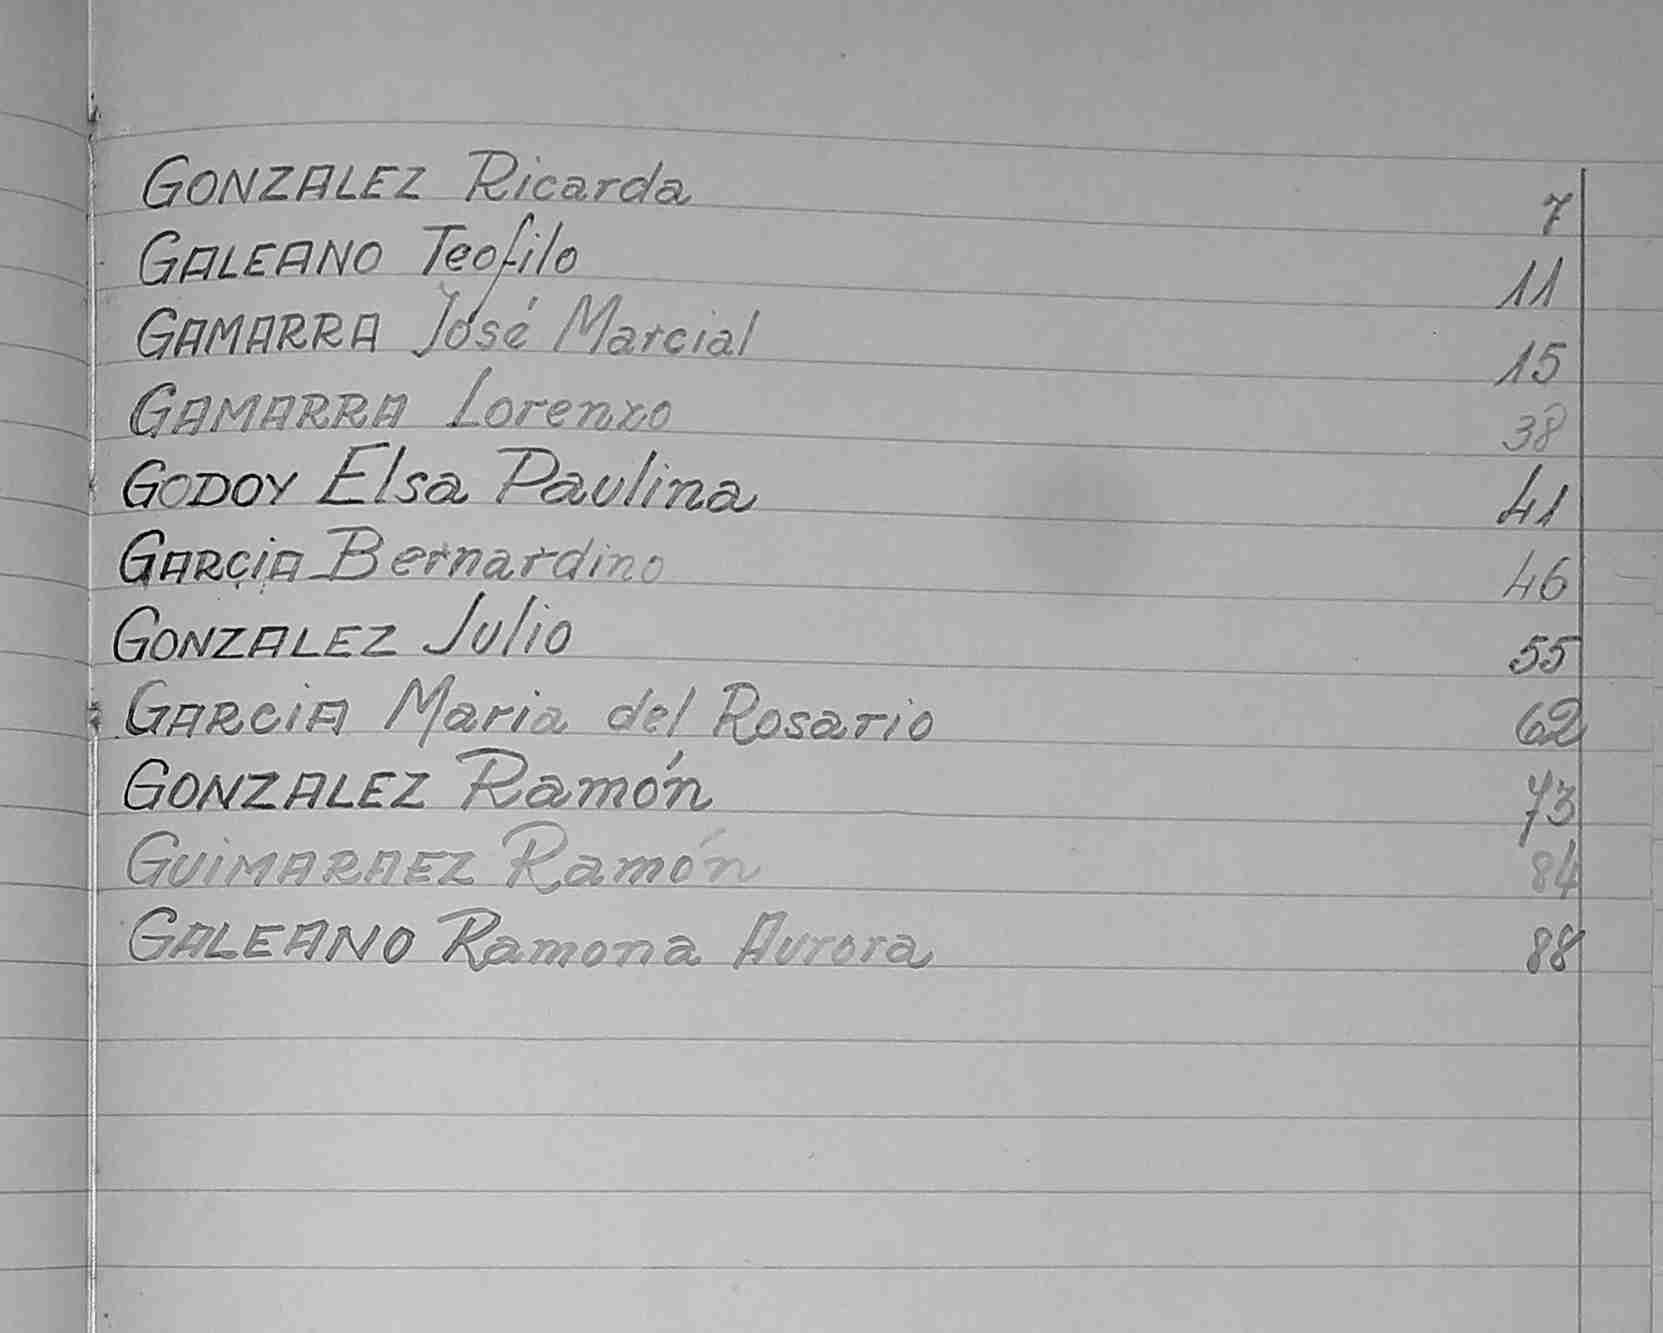 GONZALEZ Ricarda 7
GALEANO Teofilo 11
GAMARRA José Marcial 15
GAMARRA Lorenzo 38
GODOY Elsa Paulina 41
GARCIA Bernardino 46
GONZALEZ Julio 55
GARCIA Maria del Rosario 62
GONZALEZ Ramón 73
GUIMARAEZ Ramón 84
GALEANO Ramona Aurora 88